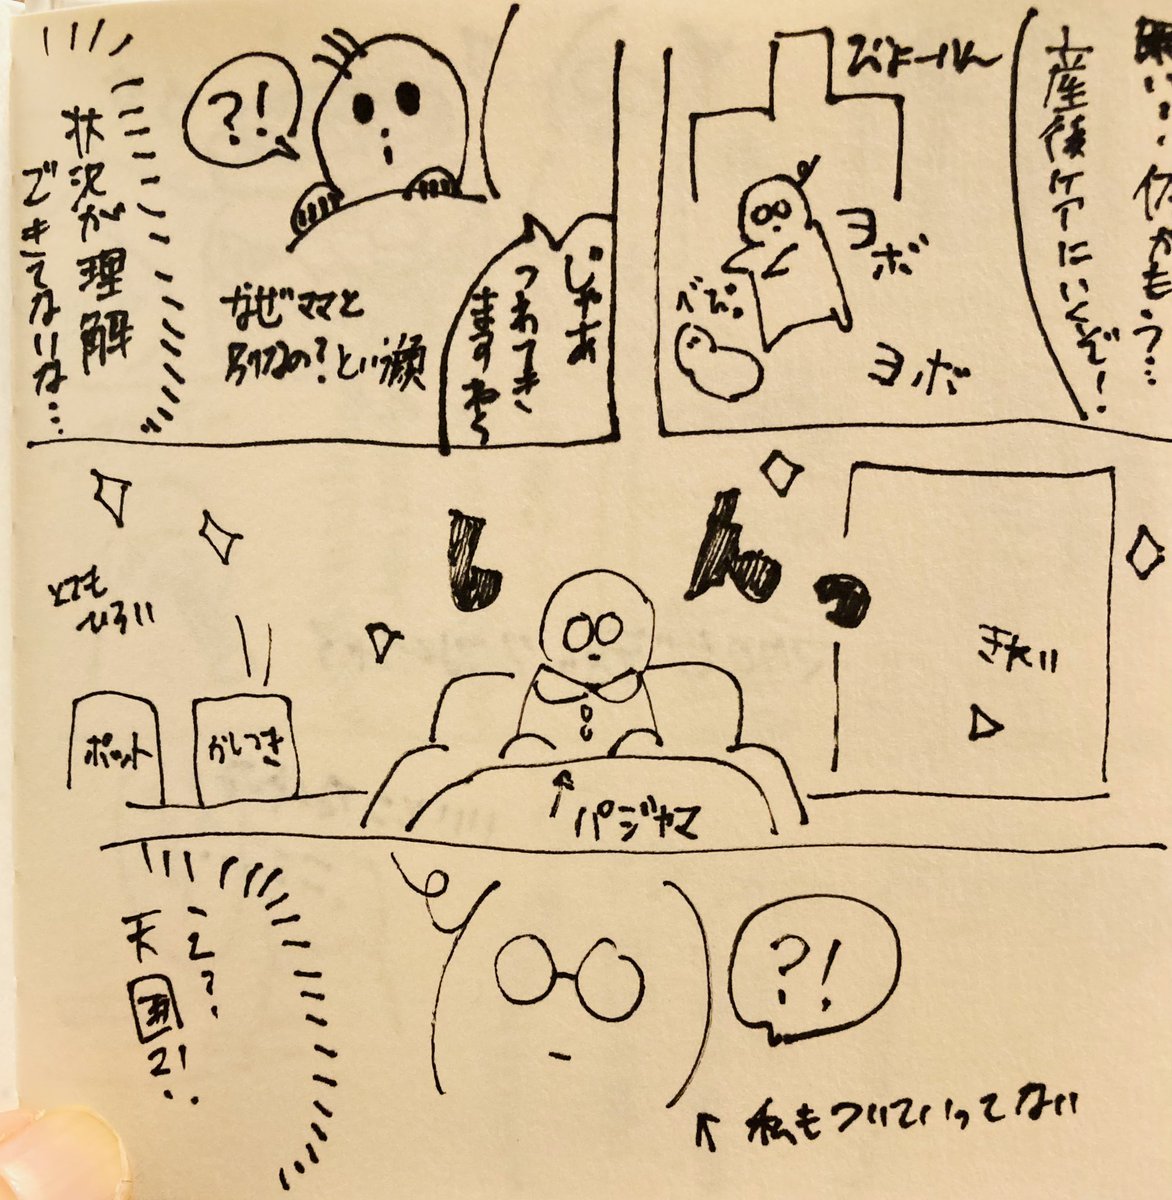 眠い…体がもう…
産後ケアにいくぞ!
びよーーん
ヨボ
ヨボ
べぷ。
じゃあ
つれてき
ますね〜
?!
なぜママと
別なの?という顔
状況が理解
できてないな…
きたい
しんっ
パジャマ
かしつき
ポット
とても
ひろい
?!
私もついていってない
ここ?
天国?!